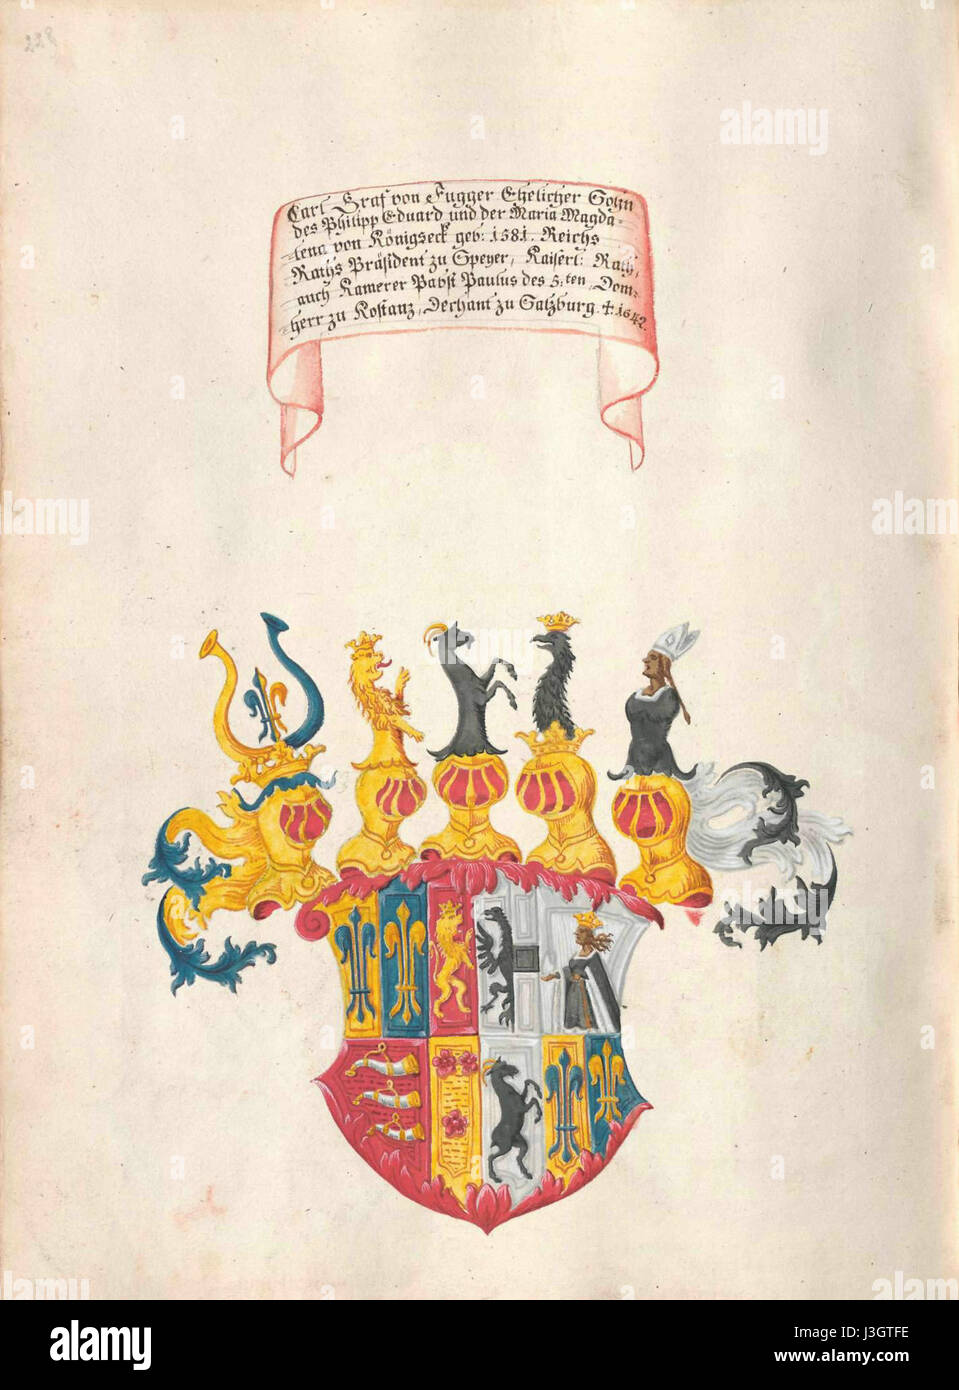 228
Carl Graf von Fugger Ehelicher Sohn
des Philipp Eduard und der Maria Magda-
lena von Königseck geb: 1581. Reichs
Raths Präsident zu Speyer, Kaiserl: Rath,
auch Kamerer Pabst Paulus des 5:ten, Dom-
herr zu Kostanz, Dechant zu Salzburg. ✝. 1642.
alamy
alamy
alamy
alamy
alamy
alamy
a
a
a
a
a
a
a
alamy
Image ID: J3GTFE
www.alamy.com